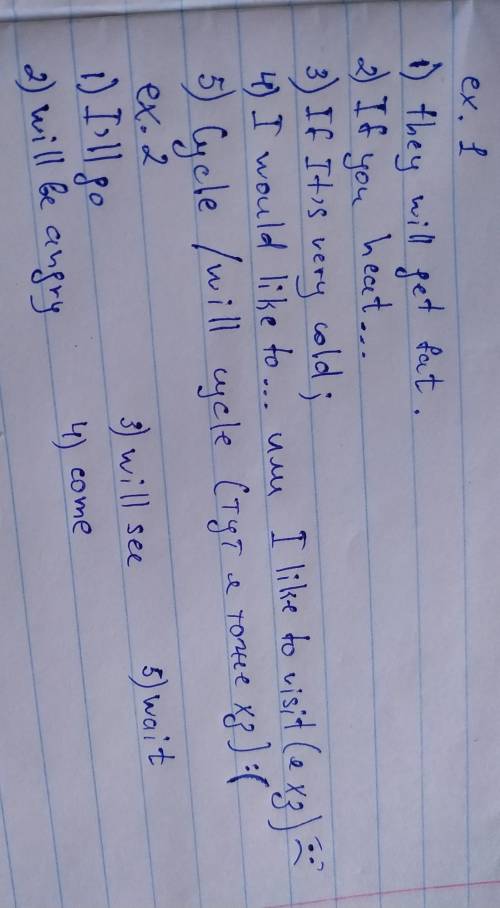 ex. 1
1) they will get fat.
2) If you heat...
3) If It's very cold;
4) I would like to... или I like to visit (я хз) :(
5) Cycle / will cycle (тут я тоже хз) :(
ex. 2
1) I'll go 3) will see 5) wait
2) will be angry 4) come